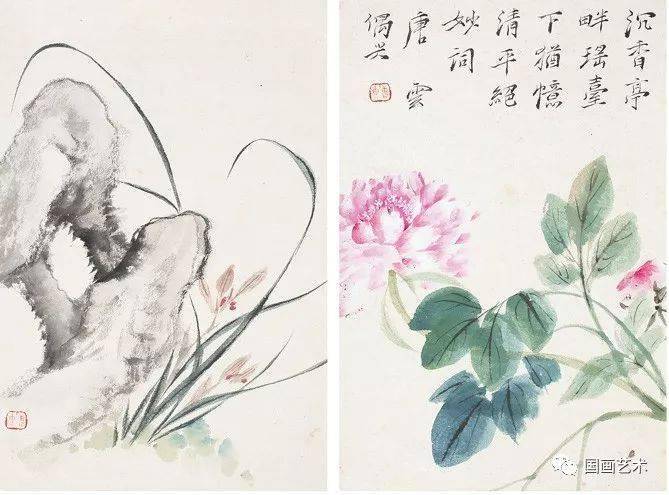 沉香亭
畔瑶臺
下猶憶
清平絕
妙詞
唐雲
偶
国画艺术